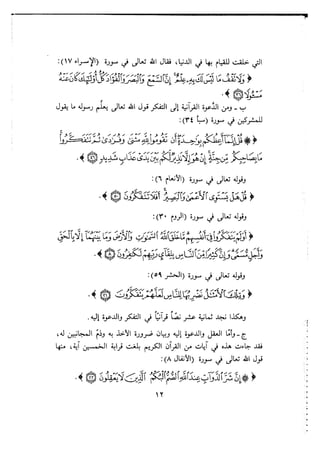 التي خلقت للقيام بها في الدنيا، فقال الله تعالى في سورة (الإسراء ١٧):
﴿ وَلَا تَقْفُ مَا لَيْسَ لَكَ بِهِ عِلْمٌ إِنَّ السَّمْعَ وَالْبَصَرَ وَالْفُؤَادَ كُلُّ أُولَٰئِكَ كَانَ عَنْهُ
مَسْئُولًا ﴾.
ب - ومن الدعوة القرآنية إلى التفكر قول الله تعالى يعلّم رسوله ما يقول
للمشركين في سورة (سبأ ٣٤):
﴿ قُلْ إِنَّمَا أَعِظُكُم بِوَاحِدَةٍ أَن تَقُومُوا لِلَّهِ مَثْنَىٰ وَفُرَادَىٰ ثُمَّ تَتَفَكَّرُوا
مَا بِصَاحِبِكُم مِّن جِنَّةٍ إِنْ هُوَ إِلَّا نَذِيرٌ لَّكُم بَيْنَ يَدَيْ عَذَابٍ شَدِيدٍ ﴾.
وقوله تعالى في سورة (الأنعام ٦):
﴿ قُلْ هَلْ يَسْتَوِي الْأَعْمَىٰ وَالْبَصِيرُ أَفَلَا تَتَفَكَّرُونَ ﴾.
وقوله تعالى في سورة (الروم ٣٠):
﴿ أَوَلَمْ يَتَفَكَّرُوا فِي أَنفُسِهِم مَّا خَلَقَ اللَّهُ السَّمَاوَاتِ وَالْأَرْضَ وَمَا بَيْنَهُمَا إِلَّا بِالْحَقِّ
وَأَجَلٍ مُّسَمًّى وَإِنَّ كَثِيرًا مِّنَ النَّاسِ بِلِقَاءِ رَبِّهِمْ لَكَافِرُونَ ﴾.
وقوله تعالى في سورة (الحشر ٥٩):
﴿ وَتِلْكَ الْأَمْثَالُ نَضْرِبُهَا لِلنَّاسِ لَعَلَّهُمْ يَتَفَكَّرُونَ ﴾.
وهكذا نجد ثمانية عشر نصاً قرآنياً في التفكر والدعوة إليه.
ج - وأمّا العقل والدعوة إليه وبيان ضرورة الأخذ به وذمّ المجانبين له،
فقد جاءت هذه في آيات من القرآن الكريم بلغت قرابة الخمسين آية، منها
قول الله تعالى في سورة (الأنفال ٨):
﴿ إِنَّ شَرَّ الدَّوَابِّ عِندَ اللَّهِ الصُّمُّ الْبُكْمُ الَّذِينَ لَا يَعْقِلُونَ ﴾.
١٢